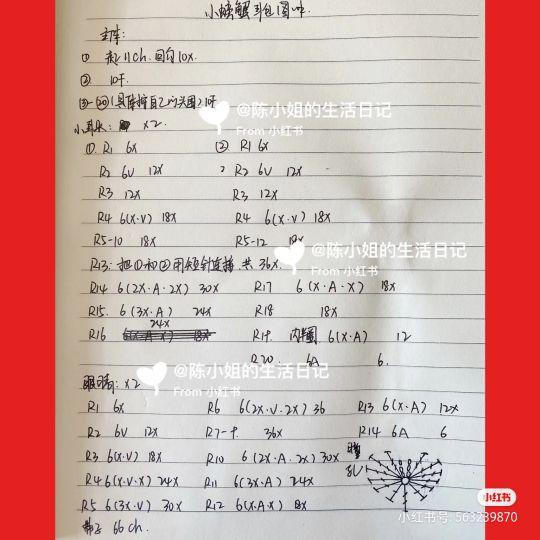 小螃蟹耳包图解.
主体:
① 起11ch. 回勾10x.
② 10F
③-⑳(具体按自己的头围)10F
小耳朵: x2.
① R1 6x ② R1 6x
R2 6V 12x R2 6V 12x
R3 12x R3 12x
R4 6(x.V) 18x R4 6(x.V) 18x
R5-10 18x R5-12 18x
R13: 把①和②用短针连接 共36x.
R14 6(2x.A.2x) 30x R17 6(x.A.x) 18x
R15. 6(3x.A) 24x R18 18x
R16 24x R19. 6(x.A) 12
R20. 6A 6.
眼睛: x2
R1 6x R6 6(2x.V.2x) 36 R13 6(x.A) 12x
R2 6V 12x R7-9. 36x R14 6A 6
R3 6(x.V) 18x R10 6(2x.A.2x) 30x 瞳孔
R4 6(x.V.x) 24x R11 6(3x.A) 24x
R5 6(3x.V) 30x R12 6(x.A.x) 18x
带子 66ch.
@陈小姐的生活日记
From 小红书
@陈小姐的生活日记
From 小红书
@陈小姐的生活日记
From 小红书
小红书
小红书号: 563239870